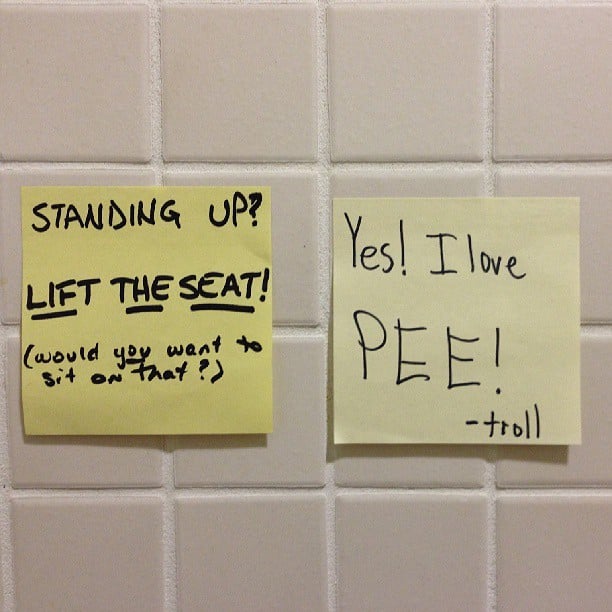 STANDING UP?
LIFT THE SEAT!
(would you want to
sit on that?)
Yes! I love
PEE!
-troll